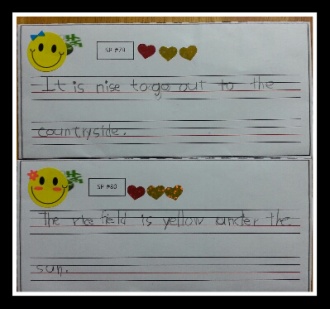 SP #79
It is nise to go out to the
countryside.
SP #80
The rice field is yellow under the
sun.